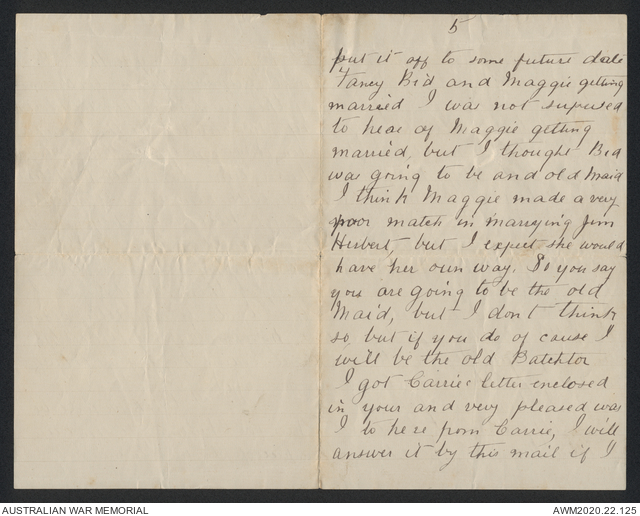 5
put it off to some future date
Fancy Bid and Maggie getting
married I was not supused
to hear of Maggie getting
married, but I thought Bid
was going to be and old Maid
I think Maggie made a very
poor match in marrying Jim
Hurbert, but I expect she would
have her own way. So you say
you are going to be the old
Maid, but I don't think
so but if you do of cause I
will be the old Batchlor
I got Carrie letter enclosed
in your and very pleased was
I to here from Carrie, I will
answer it by this mail if I
AUSTRALIAN WAR MEMORIAL
AWM2020.22.125